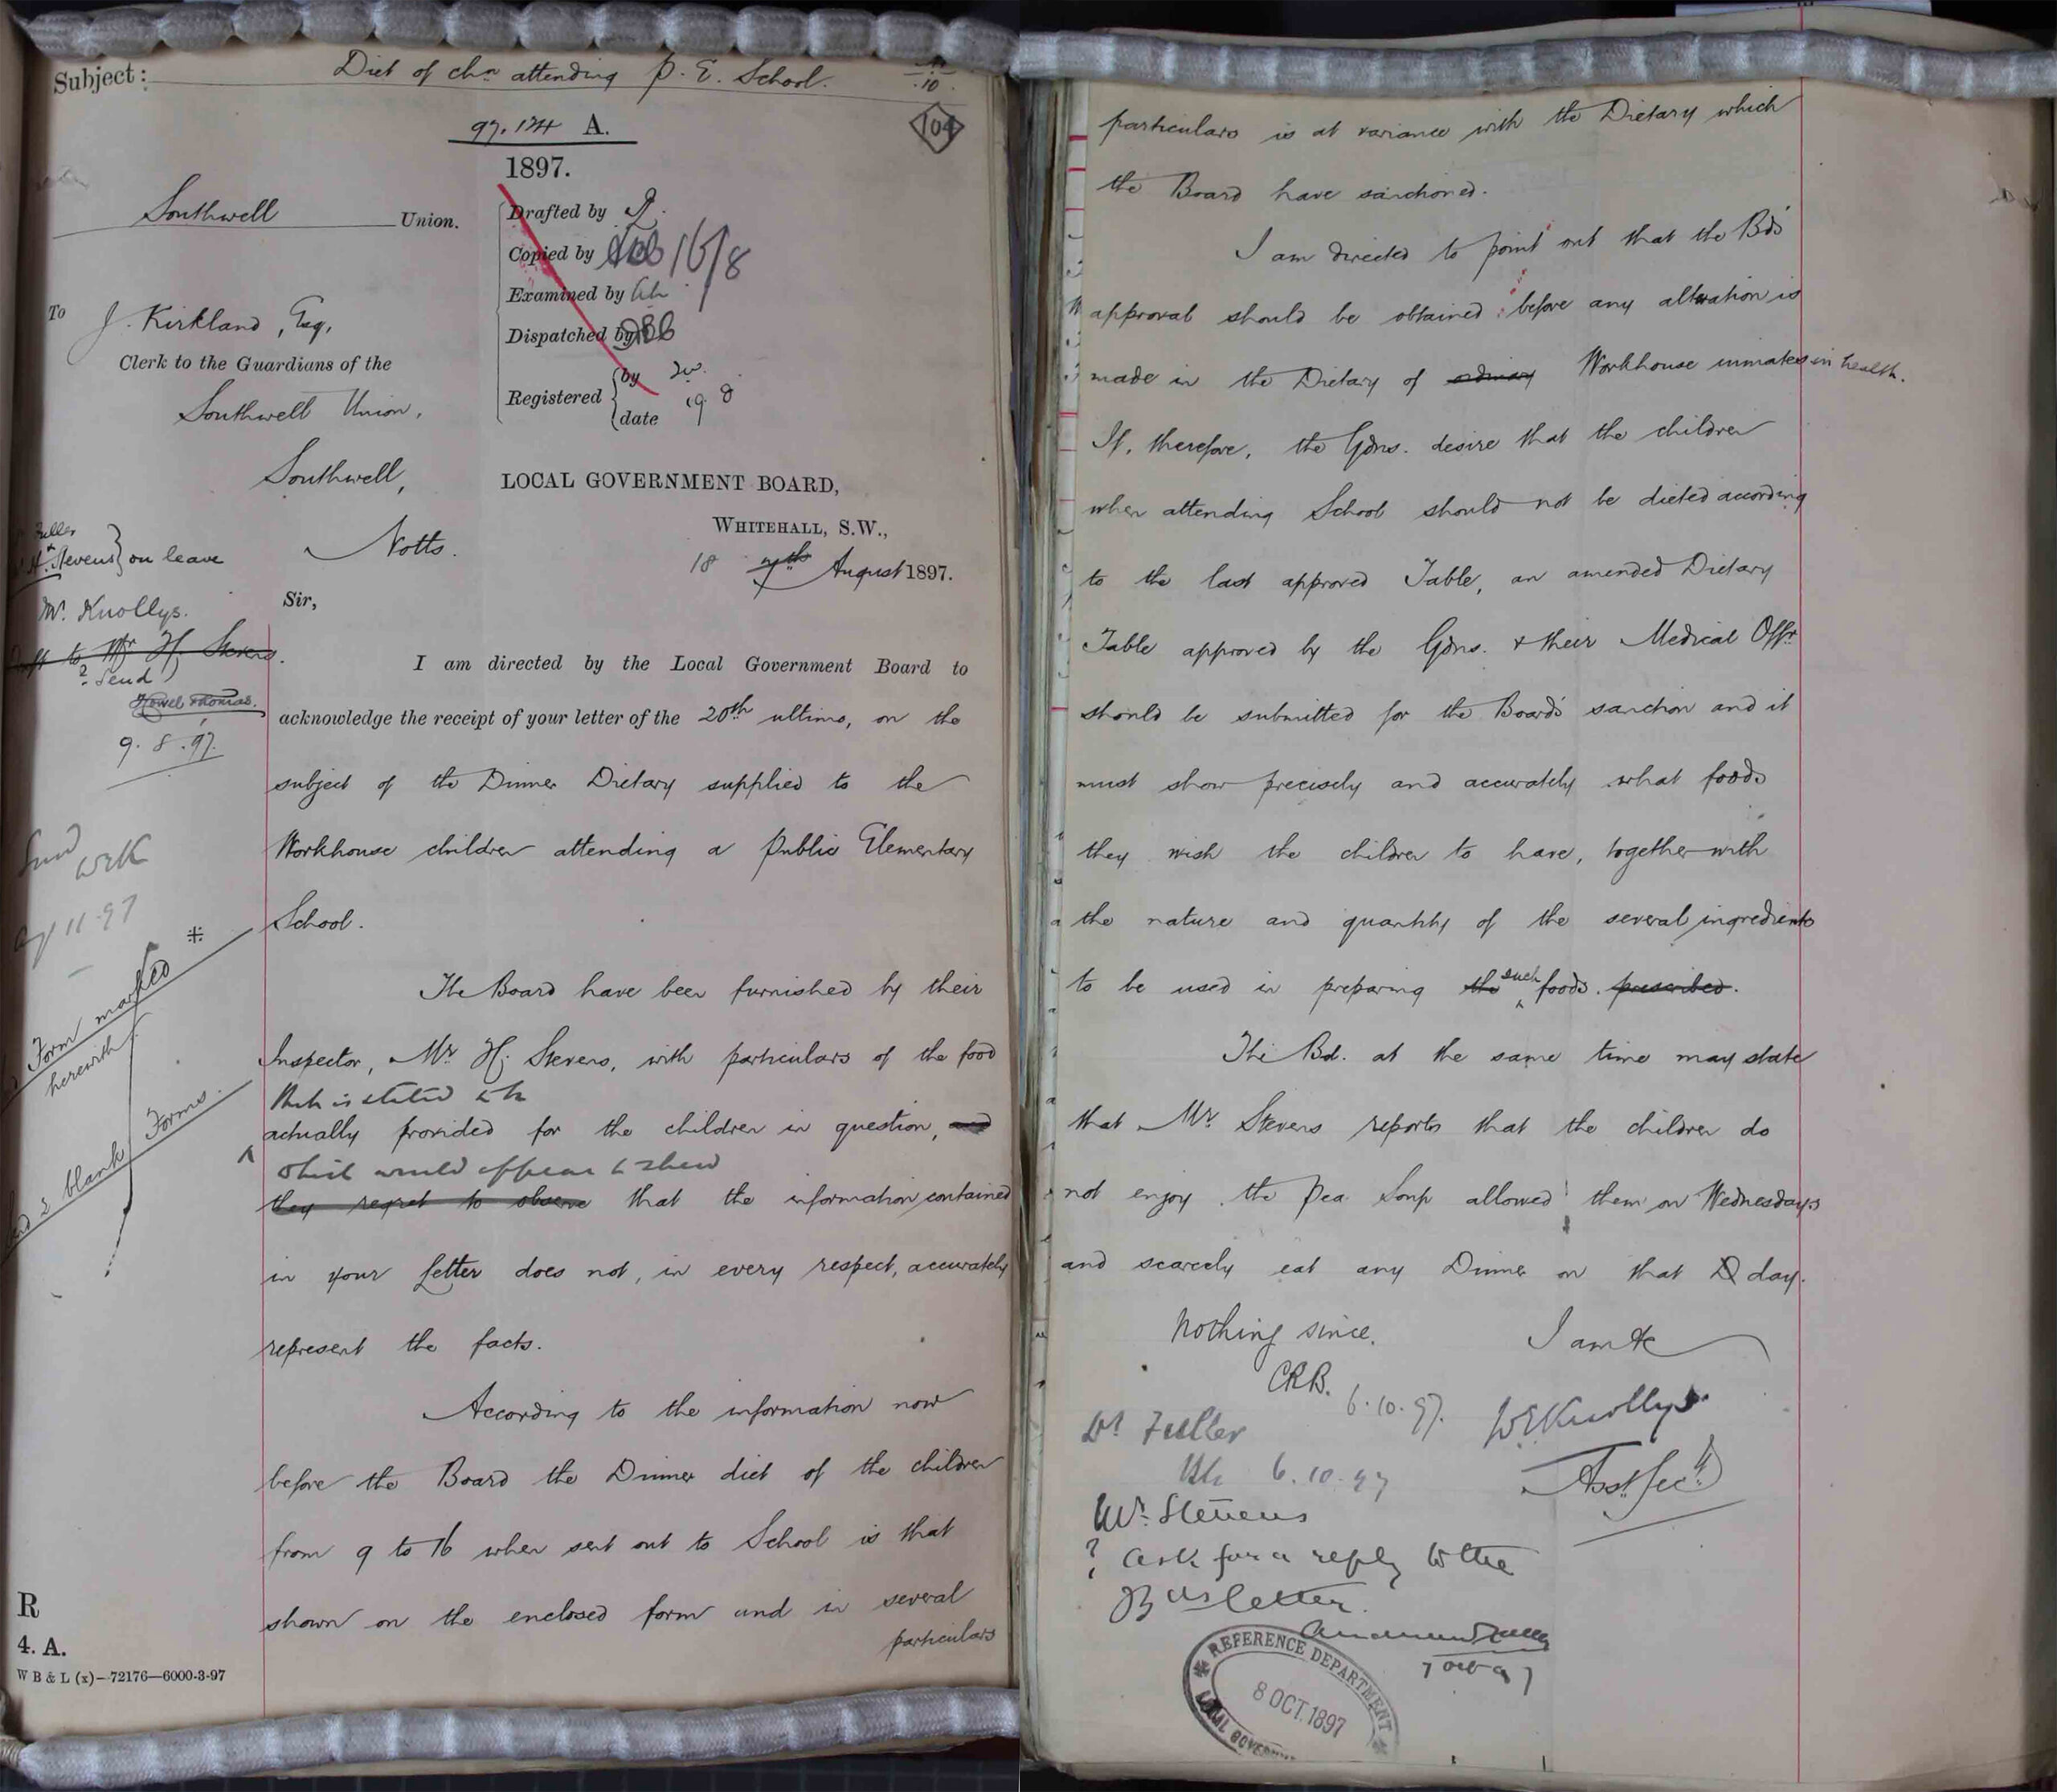 Subject: Diet of chn attending P. E. School.
10
97,174 A.
104
1897.
Southwell Union.
Drafted by
Copied by 16/8
Examined by
Dispatched by
Registered by
date 19 8
To J. Kirkland, Esq,
Clerk to the Guardians of the
Southwell Union,
Southwell,
Notts.
LOCAL GOVERNMENT BOARD,
WHITEHALL, S.W.,
18 7th August 1897.
Fuller
H. Stevens } on leave
Mr. Knollys.
Draft to Mr H. Stevens.
? Send
Howel Thomas.
9. 8. 97.
Send
WEK
Aug 11-97
Form marked
herewith
and 2 blank Forms.
Sir,
I am directed by the Local Government Board to
acknowledge the receipt of your letter of the 20th ultimo, on the
subject of the Dinner Dietary supplied to the
Workhouse children attending a Public Elementary
School.
The Board have been furnished by their
Inspector, Mr H. Stevens, with particulars of the food
which is stated to be
actually provided for the children in question, and
which would appear to shew
they regret to observe that the information contained
in your letter does not, in every respect, accurately
represent the facts.
According to the information now
before the Board the Dinner diet of the children
from 9 to 16 when sent out to School is that
shown on the enclosed form and in several
particulars
R
4. A.
W B & L (x)—72176—6000-3-97
particulars is at variance with the Dietary which
the Board have sanctioned.
I am directed to point out that the Bds
approval should be obtained before any alteration is
made in the Dietary of ordinary Workhouse inmates in health.
If, therefore, the Gdns. desire that the children
when attending School should not be dieted according
to the last approved Table, an amended Dietary
Table approved by the Gdns. & their Medical Offr
should be submitted for the Board's sanction and it
must show precisely and accurately what foods
they wish the children to have, together with
the nature and quantity of the several ingredients
to be used in preparing the such foods. prescribed.
The Bd. at the same time may state
that Mr Stevens reports that the children do
not enjoy the Pea Soup allowed them on Wednesdays
and scarcely eat any Dinner on that day.
Nothing since.
I am &c
CRB.
6.10.97.
WEKnollys
Asst Secy
Dr Fuller
6.10.97
Mr. Stevens
? ask for a reply to the
Bds letter.
7 Oct 97
REFERENCE DEPARTMENT
8 OCT. 1897
LOCAL GOVERNM